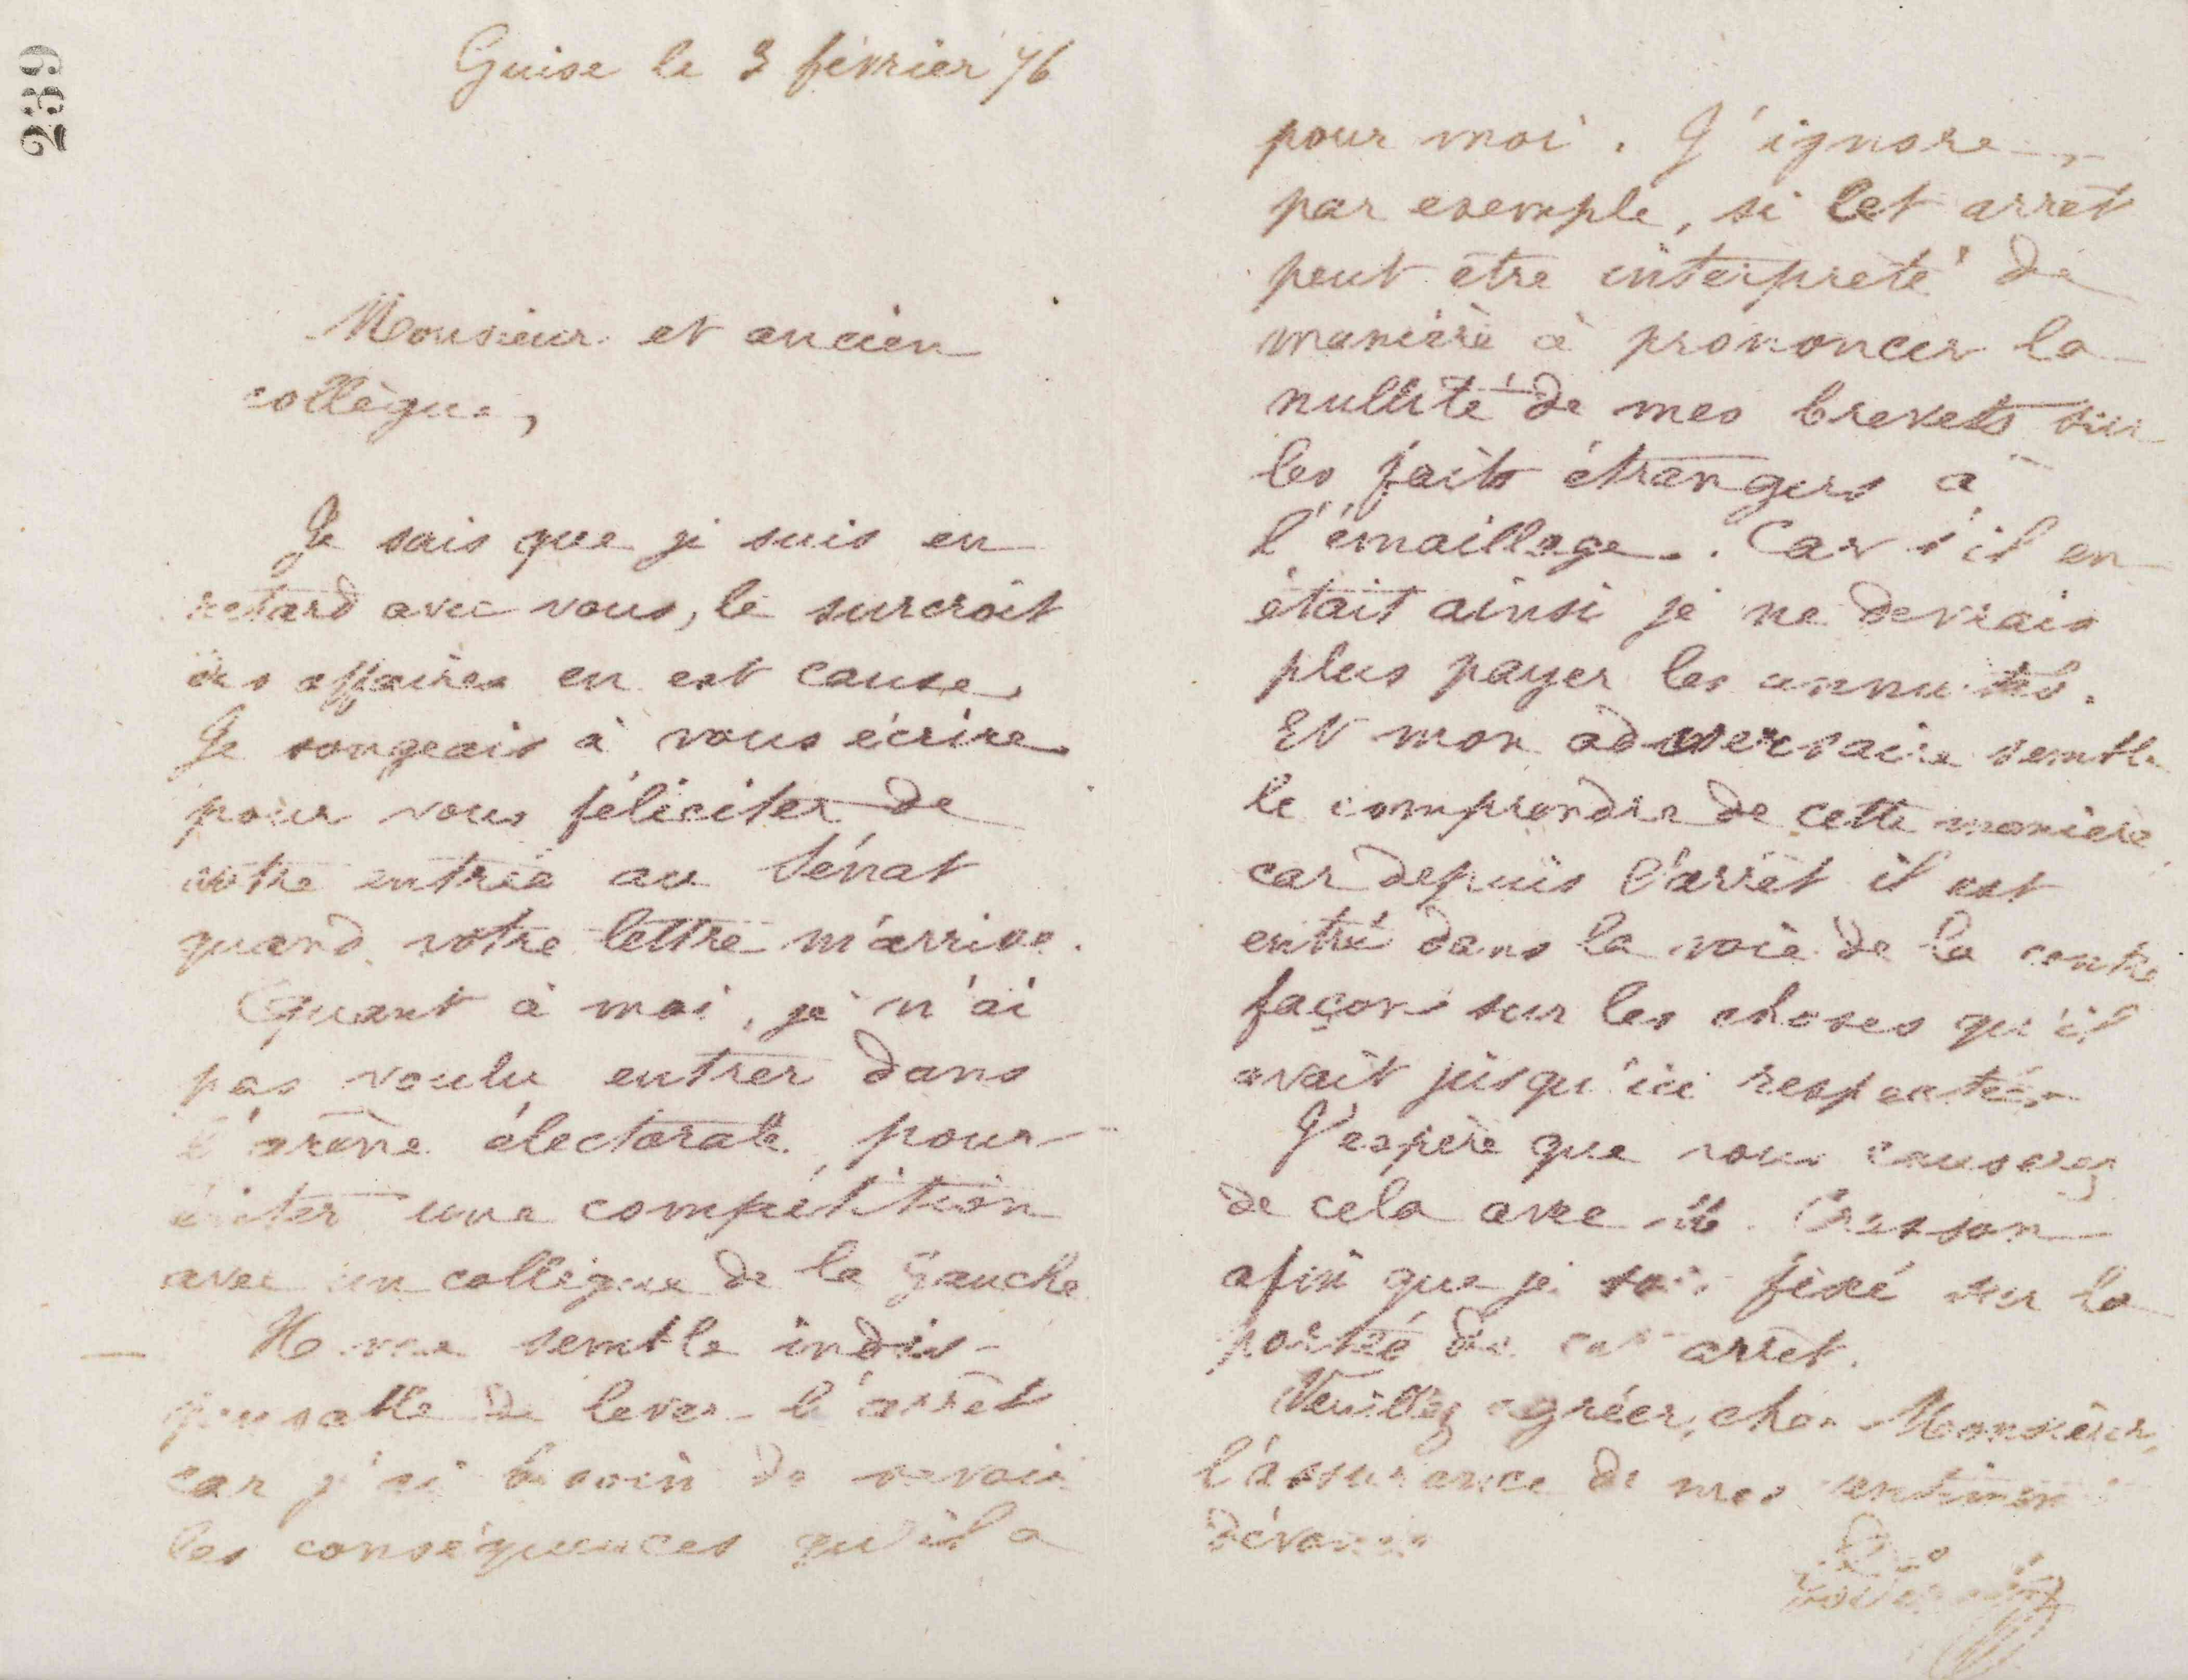 239
Guise le 3 février 76
Monsieur et ancien
collègue,
Je sais que je suis en
retard avec vous, le surcroît
des affaires en est cause.
Je songeais à vous écrire
pour vous féliciter de
votre entrée au Sénat
quand votre lettre m'arrive.
Quant à moi, je n'ai
pas voulu entrer dans
l'arène électorale pour
éviter une compétition
avec un collègue de la Gauche
Il me semble indis-
pensable de lever l'arrêt
car j'ai besoin de savoir
les conséquences qu'il a
pour moi. J'ignore,
par exemple, si cet arrêt
peut être interprêté de
manière à prononcer la
nullité de mes brevets sur
les faits étrangers à
l'émaillage. Car s'il en
était ainsi je ne devrais
plus payer les annuités.
Et mon adversaire semble
le comprendre de cette manière
car depuis l'arrêt il est
entré dans la voie de la contre
façon sur les choses qu'il
avait jusqu'ici respectées.
J'espère que vous causerez
de cela avec M. Cresson
afin que je sois fixé sur la
portée de cet arrêt.
Veuillez agréer, cher Monsieur,
l'assurance de mes sentiments
dévoués